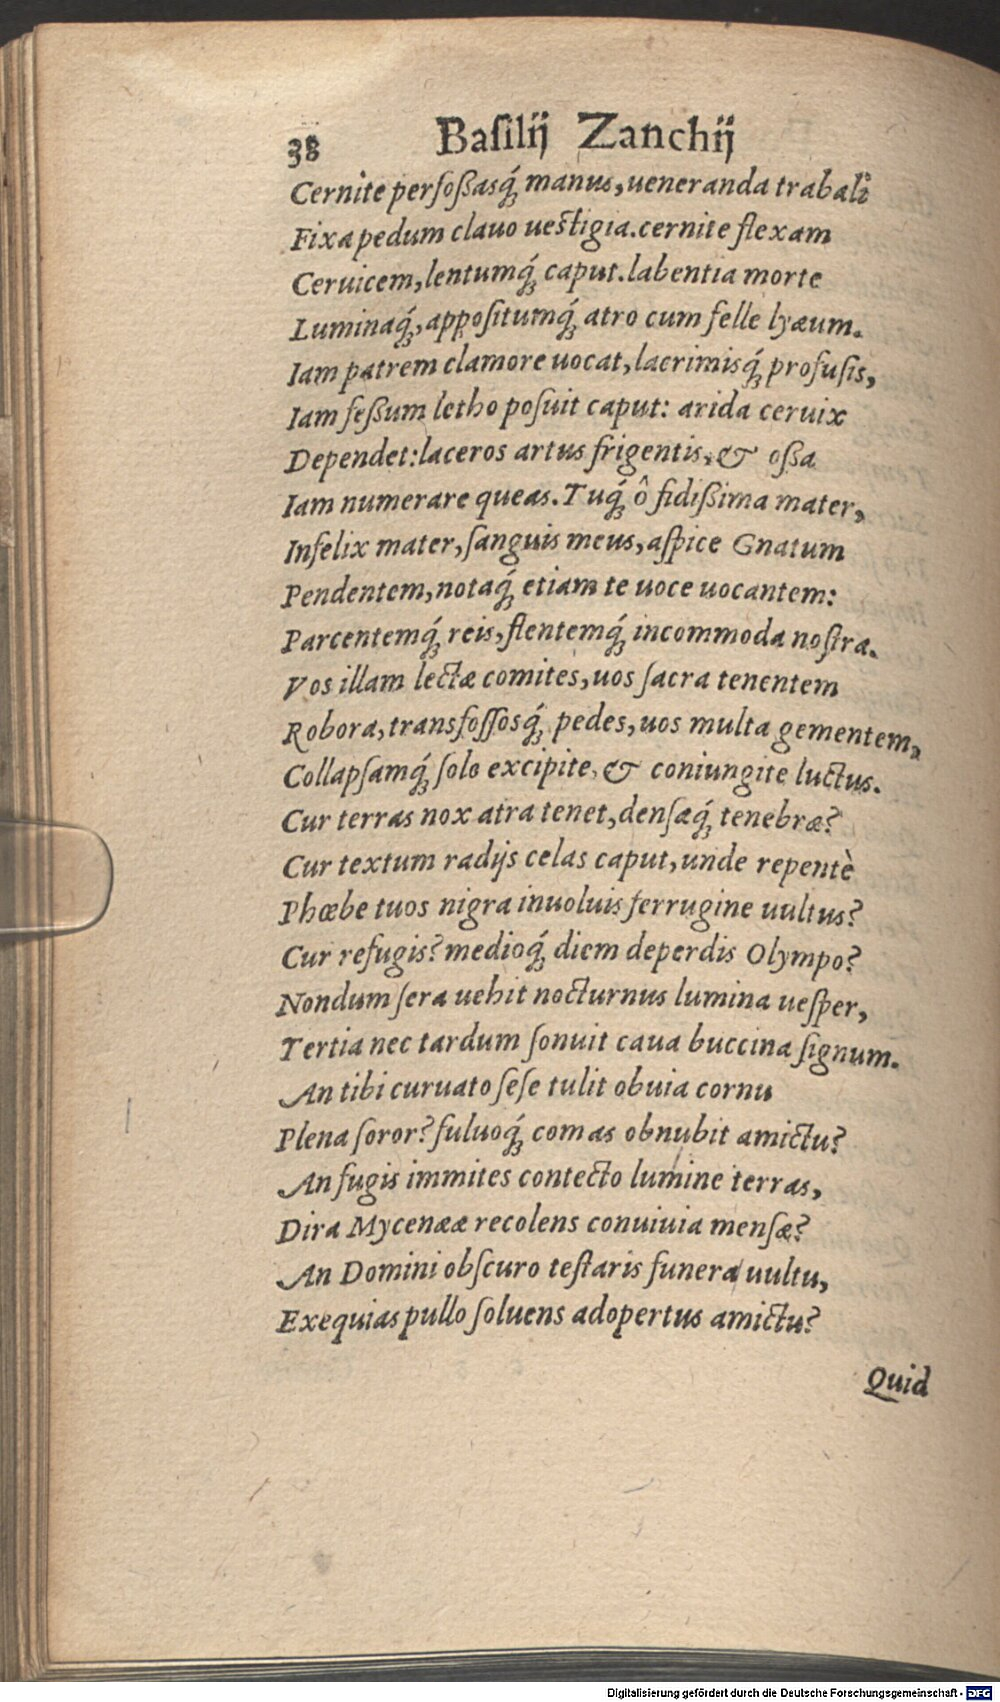 38 Baſilij Zanchij
Cernite perfoßasq́ꝫ manus, ueneranda trabali
Fixa pedum clauo ueſtigia. cernite flexam
Ceruicem, lentumq́ꝫ caput. labentia morte
Luminaq́ꝫ, appoſitumq́ꝫ atro cum felle lyæum.
Iam patrem clamore uocat, lacrimisq́ꝫ profuſis,
Iam feßum letho poſuit caput: arida ceruix
Dependet: laceros artus frigentis, & oßa
Iam numerare queas. Tuq́ꝫ ô fidißima mater,
Infelix mater, ſanguis meus, aſpice Gnatum
Pendentem, notaq́ꝫ etiam te uoce uocantem:
Parcentemq́ꝫ reis, flentemq́ꝫ incommoda noſtra.
Vos illam lectæ comites, uos ſacra tenentem
Robora, transfoſſosq́ꝫ pedes, uos multa gementem,
Collapſamq́ꝫ ſolo excipite, & coniungite luctus.
Cur terras nox atra tenet, denſæq́ꝫ tenebræ?
Cur textum radijs celas caput, unde repentè
Phœbe tuos nigra inuoluis ferrugine uultus?
Cur refugis? medioq́ꝫ diem deperdis Olympo?
Nondum ſera uehit nocturnus lumina ueſper,
Tertia nec tardum ſonuit caua buccina ſignum.
An tibi curuato ſeſe tulit obuia cornu
Plena ſoror? fuluoq́ꝫ comas obnubit amictu?
An fugis immites contecto lumine terras,
Dira Mycenææ recolens conuiuia menſæ?
An Domini obſcuro teſtaris funera uultu,
Exequias pullo ſoluens adopertus amictu?
Quid
Digitalisierung gefördert durch die Deutsche Forschungsgemeinschaft - DFG